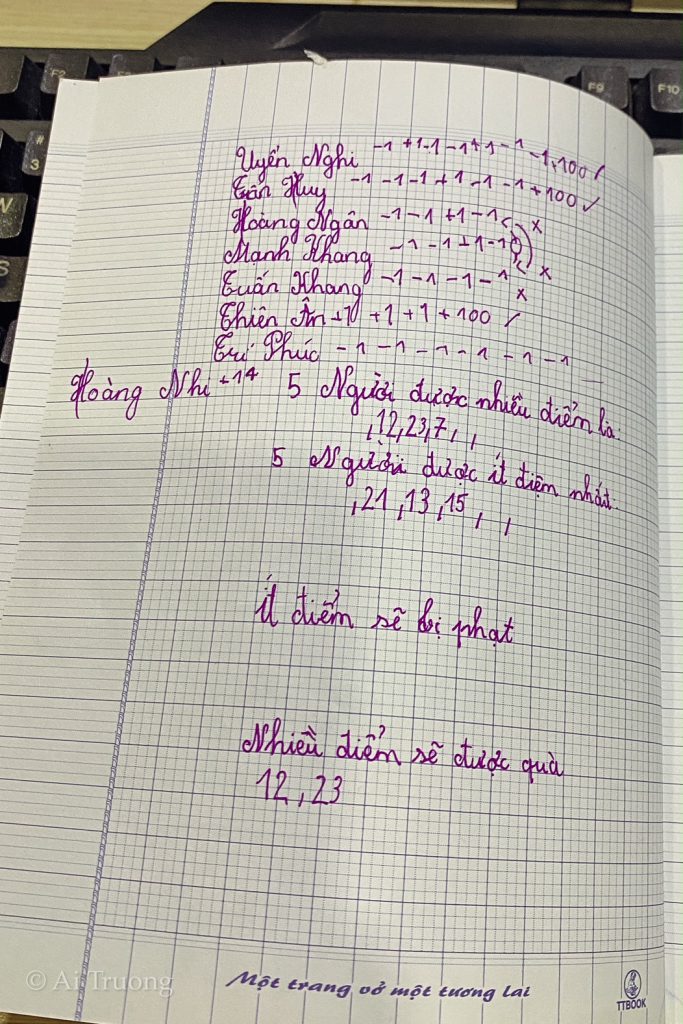 Uyển Nghi -1 +1-1-1+1-1-1,100 /
Tấn Huy -1 -1-1+1-1-1+100 ✓
Hoàng Ngân -1-1+1-1 x
Mạnh Khang -1-1+1-10 x
Tuấn Khang -1-1-1-1 x
Thiên Ân +1+1+1+100 /
Trí Phúc -1-1-1-1-1-1
Hoàng Nhi +14 5 Người được nhiều điểm là:
,12,23,7, ,
5 Người được ít điểm nhất.
,21,13,15, ,
ít điểm sẽ bị phạt
Nhiều điểm sẽ được quà
12,23
Một trang vở một tương lai
TTBOOK
© Ai Truong
F2
F9
F10
#
3
W
S